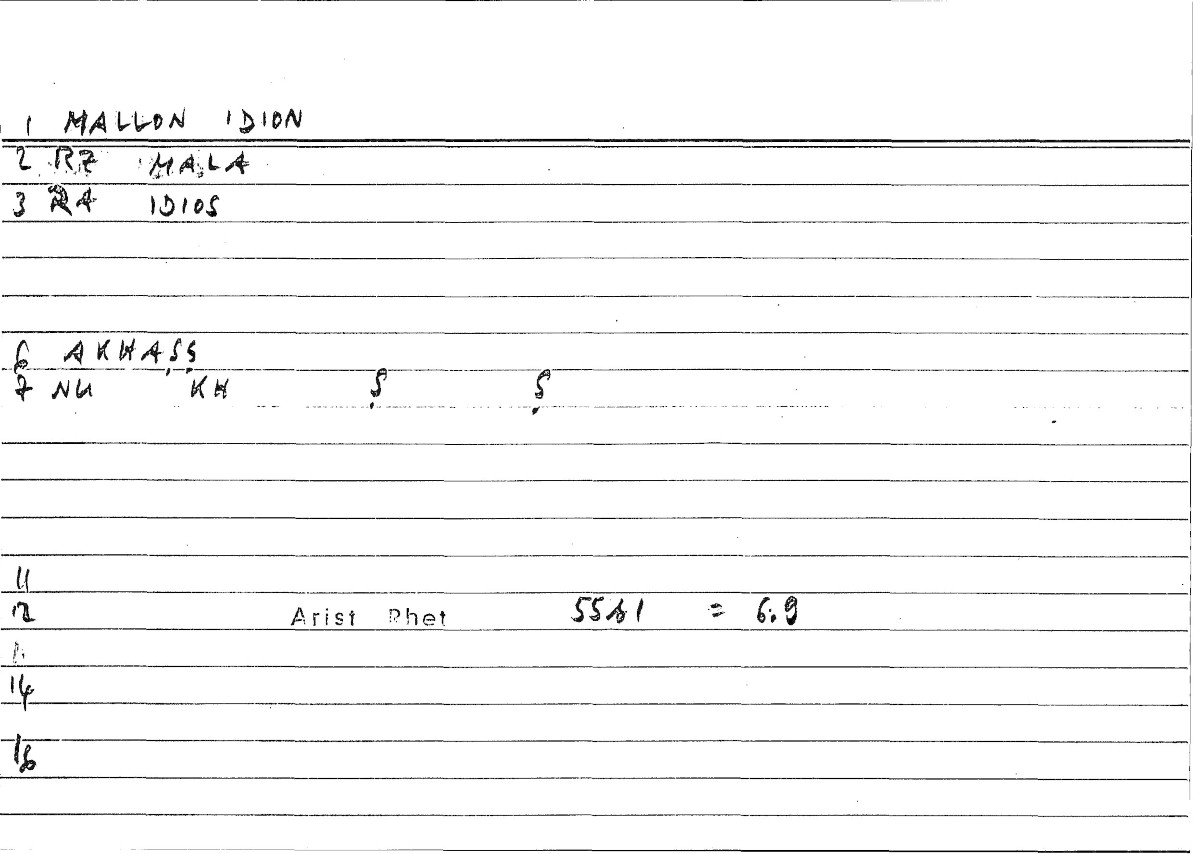 1 MALLON IDION
2 RZ MALA
3 RA IDIOS
6 AKHAṢṢ
7 NU KH Ṣ Ṣ
11
12 Arist Rhet 55b1 = 6.9
14